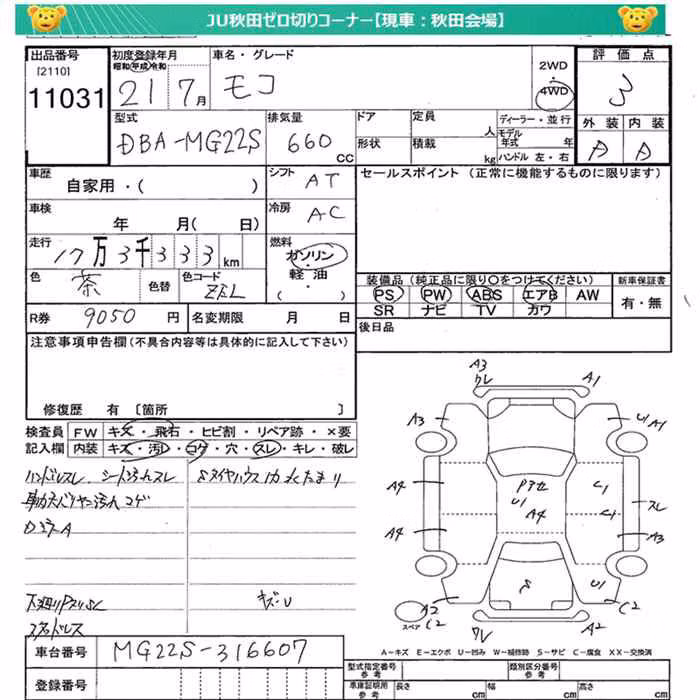 JU秋田ゼロ切りコーナー【現車：秋田会場】
出品番号
[2110]
11031
初度登録年月
昭和 平成 令和
21 7月
車名・グレード
モコ
2WD
・
4WD
評価点
3
外装 内装
A A
型式
DBA-MG22S
排気量
660
CC
ドア
定員
人
形状
積載
kg
ディーラー・並行
モデル
年式 年
ハンドル 左・右
車歴
自家用・( )
シフト
AT
セールスポイント (正常に機能するものに限ります)
車検
年 月( 日)
冷房
AC
走行
17万3千333km
燃料
ガソリン
軽油
( ・ )
色
茶
色替
色コード
ZEL
装備品 (純正品に限り○をつけてください)
PS PW ABS エアB AW
SR ナビ TV カワ
新車保証書
有・無
R券 9050 円
名変期限 月 日
後日品
注意事項申告欄(不具合内容等は具体的に記入して下さい)
修復歴 有 [箇所 ]
検査員
記入欄
FW キズ・飛石・ヒビ割・リペア跡・×要
内装 キズ・汚レ・コゲ・穴・スレ・キレ・破レ
ハンドルスレ シート汚れスレ
DミラーA
キズU
A3
クレ
A1
A3
U1A1
A4
Pアセ
U1
A4
C1
スレ
A4
C1
A3
S
U1
A2
C2
C2
ワレ
A2
スペア
A－キズ E－エクボ U－凹み W－補修跡 S－サビ C－腐食 XX－交換済
車台番号
MG22S-316607
登録番号
型式指定番号
参考
類別区分番号
参考
車庫証明用
参考
長さ cm
幅 cm
高さ cm